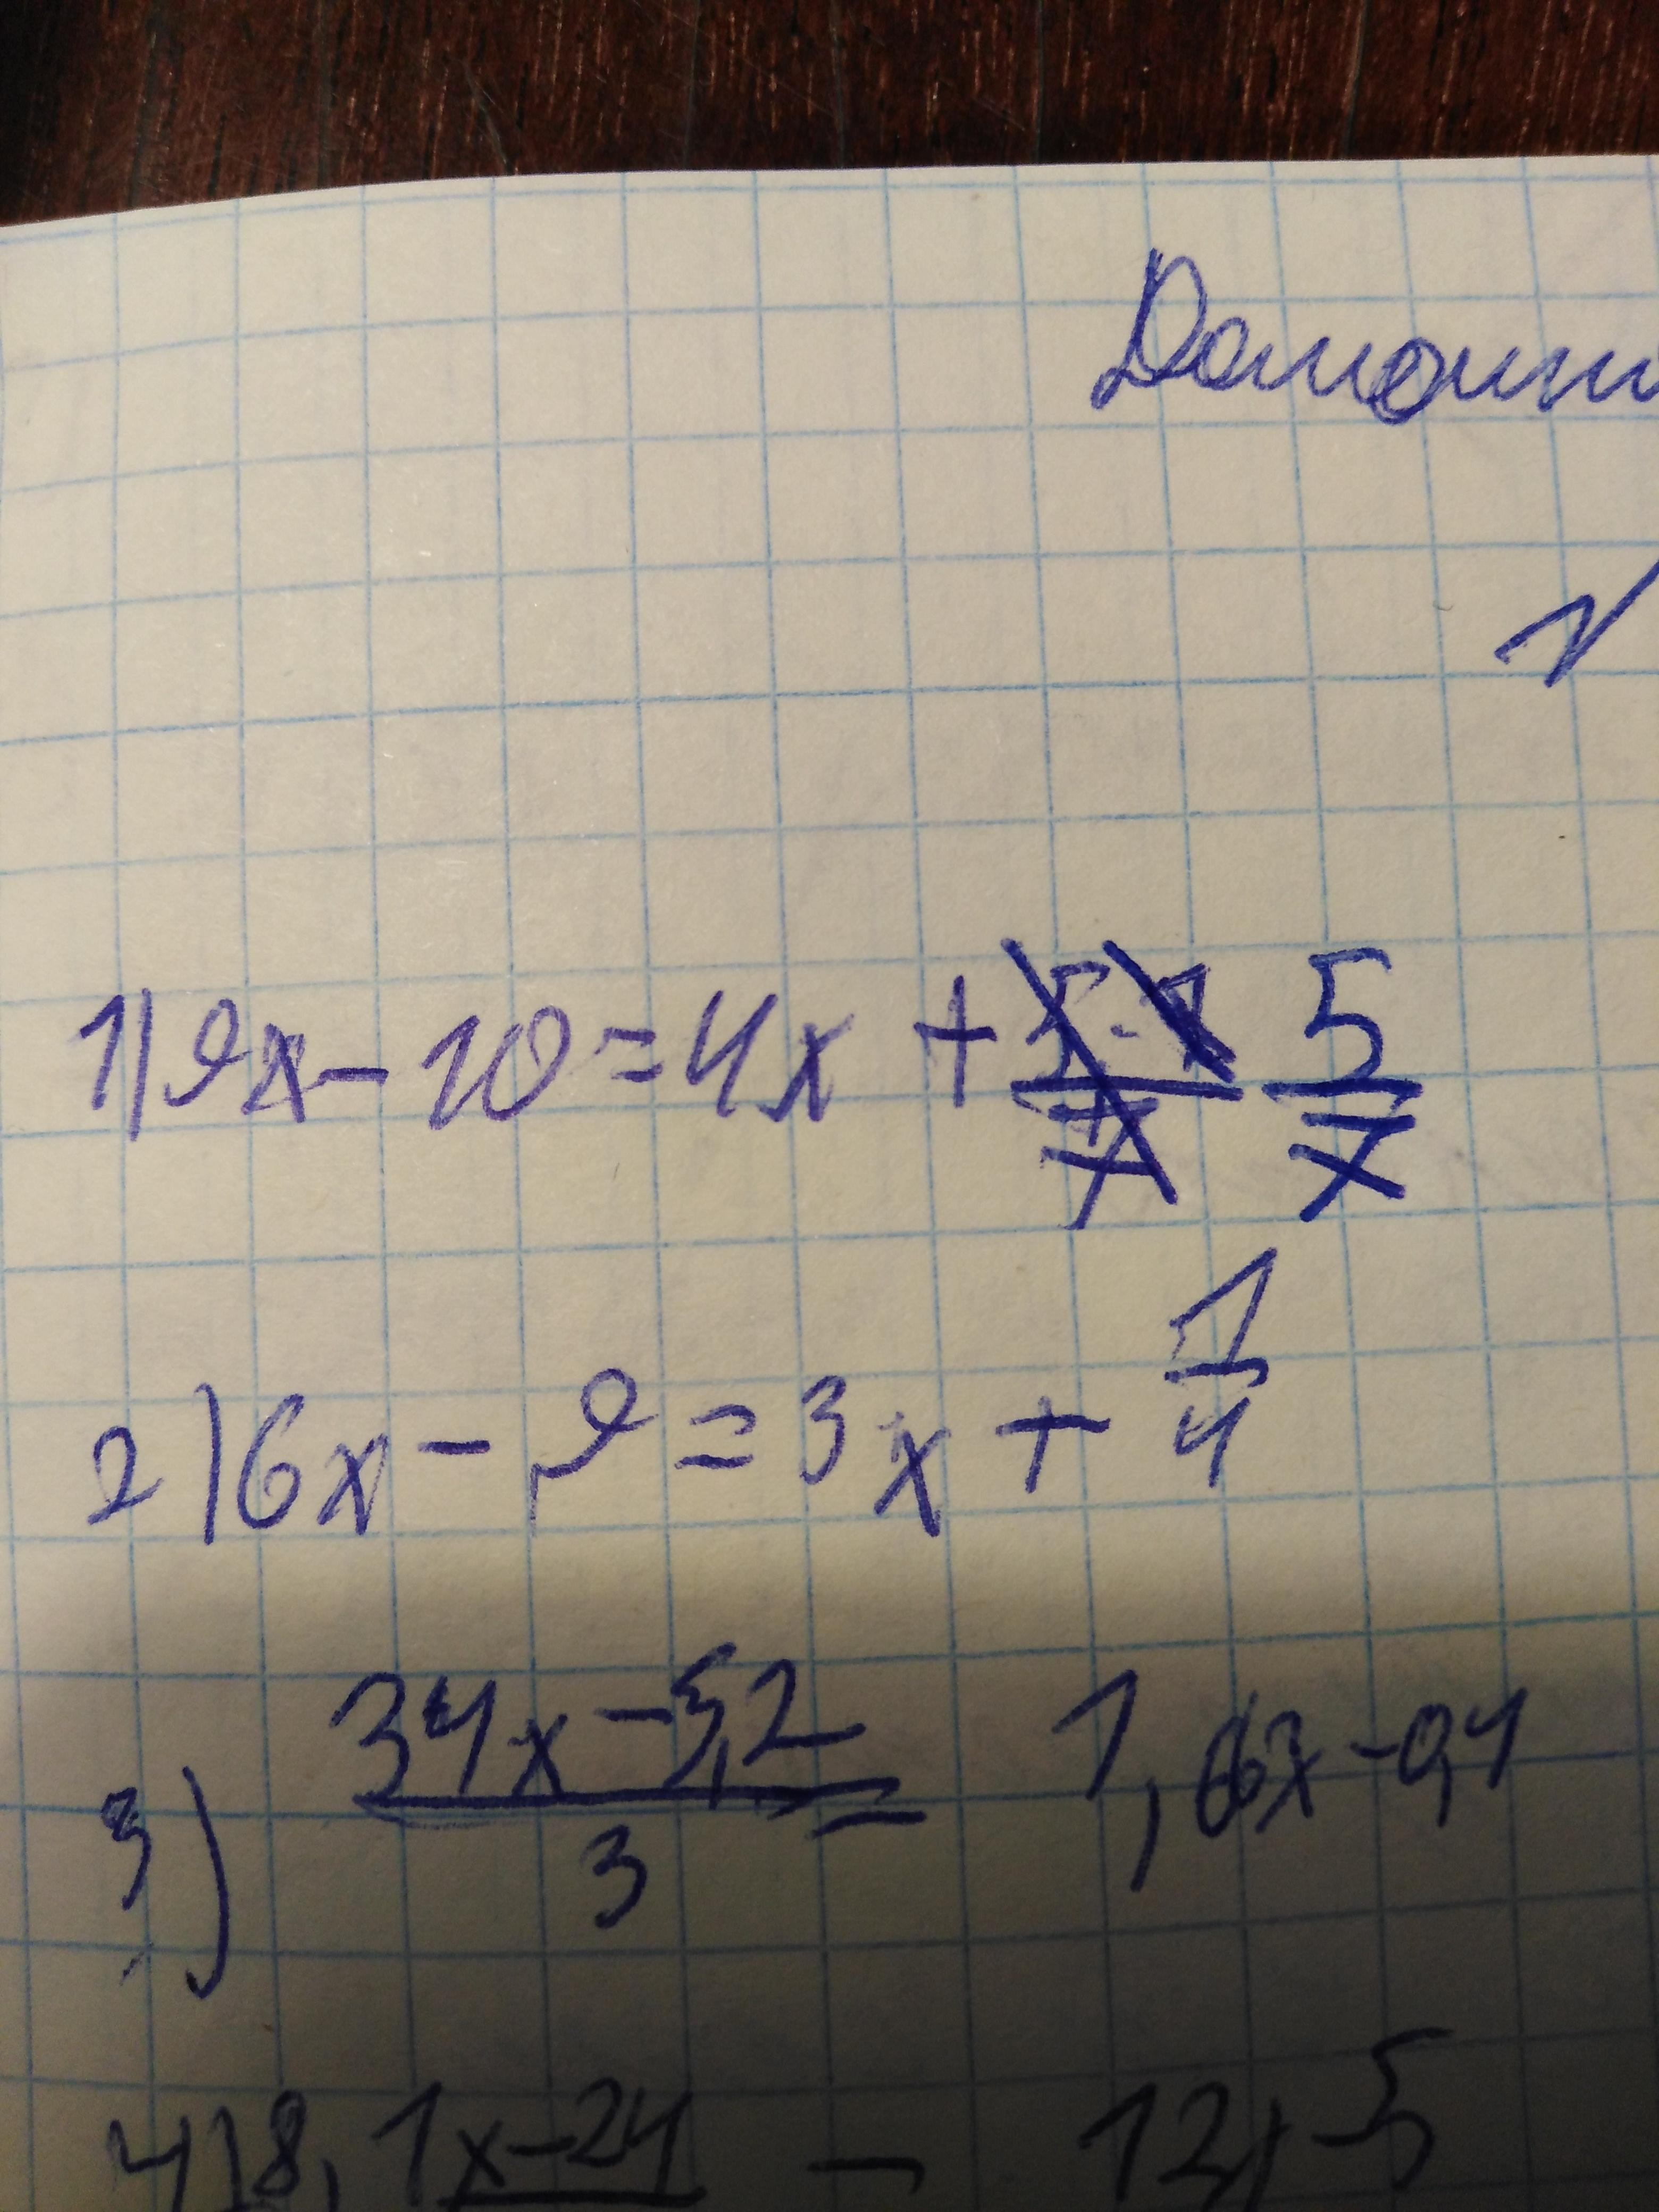 1) 9x - 10 = 4x + 5/7
2) 6x - 9 = 3x + 1/4
3) (34x - 5,2)/3 = 1,6x - 0,4
4) 8,1x - 24 12,5